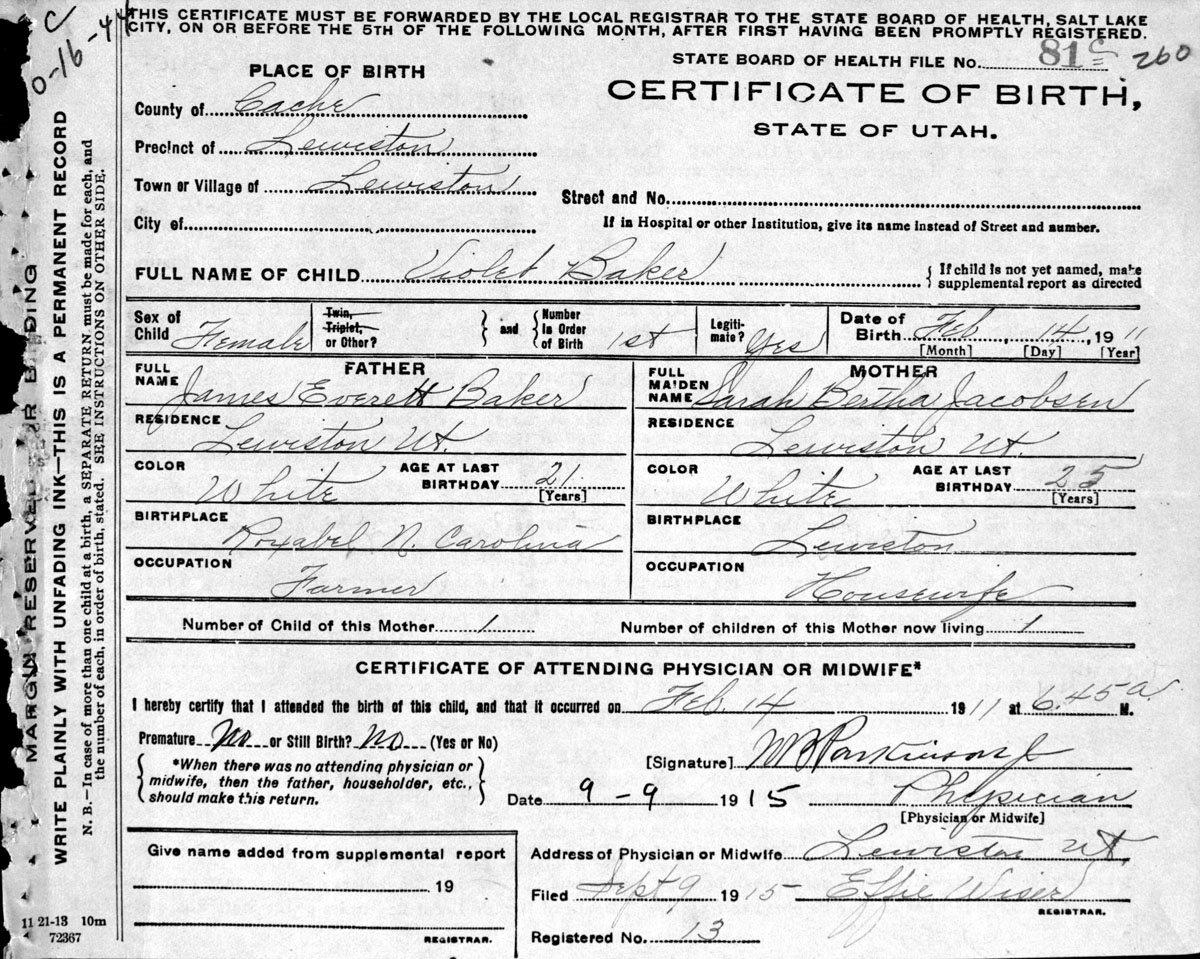 THIS CERTIFICATE MUST BE FORWARDED BY THE LOCAL REGISTRAR TO THE STATE BOARD OF HEALTH, SALT LAKE
CITY, ON OR BEFORE THE 5TH OF THE FOLLOWING MONTH, AFTER FIRST HAVING BEEN PROMPTLY REGISTERED.
STATE BOARD OF HEALTH FILE No. 81 c 260
CERTIFICATE OF BIRTH,
STATE OF UTAH.
PLACE OF BIRTH
County of Cache
Precinct of Lewiston
Town or Village of Lewiston
Street and No.
City of
If in Hospital or other Institution, give its name instead of Street and number.
FULL NAME OF CHILD Violet Baker { If child is not yet named, make
supplemental report as directed
Sex of Child Female
Twin, Triplet, or Other? } and { Number in Order of Birth 1st
Legitimate? Yes
Date of Birth Feb, 14, 1911
[Month] [Day] [Year]
FATHER
FULL NAME James Everett Baker
RESIDENCE Lewiston Ut.
COLOR White AGE AT LAST BIRTHDAY 21 [Years]
BIRTHPLACE Roxabel N. Carolina
OCCUPATION Farmer
MOTHER
FULL MAIDEN NAME Sarah Bertha Jacobsen
RESIDENCE Lewiston Ut.
COLOR White AGE AT LAST BIRTHDAY 25 [Years]
BIRTHPLACE Lewiston
OCCUPATION Housewife
Number of Child of this Mother 1 Number of children of this Mother now living 1
CERTIFICATE OF ATTENDING PHYSICIAN OR MIDWIFE*
I hereby certify that I attended the birth of this child, and that it occurred on Feb. 14 1911 at 6.45 a M.
Premature No or Still Birth? No (Yes or No)
{ *When there was no attending physician or
midwife, then the father, householder, etc.,
should make this return. }
[Signature] W B Parkinson Jr
Date 9-9 1915 Physician
[Physician or Midwife]
Give name added from supplemental report
19
REGISTRAR.
Address of Physician or Midwife Lewiston Ut.
Filed Sept 9 1915 Effie Wiser
REGISTRAR.
Registered No. 13
MARGIN RESERVED FOR BINDING
WRITE PLAINLY WITH UNFADING INK—THIS IS A PERMANENT RECORD
N. B.—In case of more than one child at a birth, a SEPARATE RETURN must be made for each, and
the number of each, in order of birth, stated. SEE INSTRUCTIONS ON OTHER SIDE.
11 21-13 10m
72367